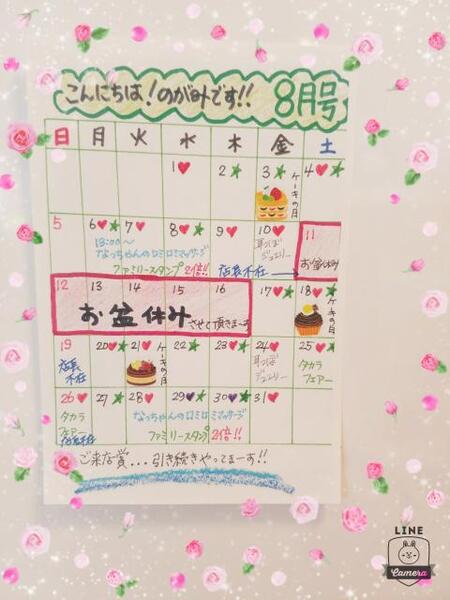 こんにちは!のがみです!! 8月号
日 月 火 水 木 金 土
1♥ 2★ 3★ 4♥★
ケーキの日
5 6♥★ 7♥ 8♥★ 9♥ 10♥ 11
13:00〜
なっちゃんのロミロミマッサージ
ファミリースタンプ2倍!!
店長不在
耳つぼ
ジュエリー
お盆休み
12 13 14 15 16 17♥★ 18♥★
お盆休みさせて頂きまーす
ケーキの日
19 20♥★ 21♥ 22★ 23♥★ 24♥ 25♥★
店長
不在
ケーキの日
耳つぼ
ジュエリー
タカラ
フェアー
26♥ 27★ 28♥ 29♥★ 30♥★ 31♥
タカラ
フェアー
店長不在
なっちゃんのロミロミマッサージ
ファミリースタンプ2倍!!
ご来店賞...引き続きやってまーす!!
LINE
Camera